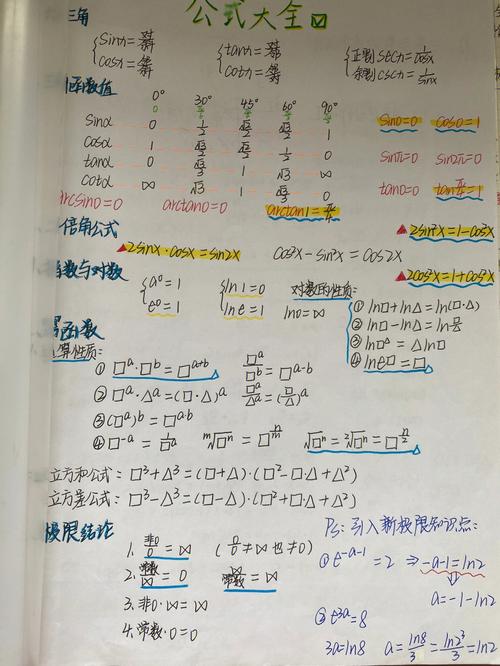 公式大全
三角
{sinx=对/斜 cosx=邻/斜 {tanx=对/邻 cotx=邻/对 {正割secx=1/cosx 余割cscx=1/sinx
函数值
0° 30° 45° 60° 90°
sinα 0 1/2 √2/2 √3/2 1 sin0=0 cos0=1
cosα 1 √3/2 √2/2 1/2 0 sinπ=0 sin2π=0
tanα 0 √3/3 1 √3 ∞ tan0=0 tanπ/4=1
cotα ∞ √3 1 √3/3 0
arcsin0=0 arctan0=0 arctan1=π/4
倍角公式
▲2sinx·cosx=sin2x cos²x-sin²x=cos2x
▲2sin²x=1-cos2x
▲2cos²x=1+cos2x
指数与对数
{a⁰=1 e⁰=1 {ln1=0 lne=1 对数的性质: ln0=∞
① ln□+ln△=ln(□·△)
② ln□-ln△=ln□/△
③ ln□^△=△ln□
④ lne^□=□
幂函数
运算性质:
① □^a·□^b=□^(a+b) □^a/□^b=□^(a-b)
② □^a·△^a=(□·△)^a □^a/△^a=(□/△)^a
③ (□^a)^b=□^(a·b)
④ □^-a=1/□^a ᵐ√□ⁿ=□^(n/m) √□ⁿ=²√□ⁿ=□^(n/2)
立方和公式:□³+△³=(□+△)·(□²-□·△+△²)
立方差公式:□³-△³=(□-△)·(□²+□·△+△²)
极限结论
1. 非0/0=∞ (0/0≠∞也≠0)
2. 常数/∞=0 ∞/常数=∞
3. 非0·∞=∞
4. 常数·0=0
Ps:引入新极限知识点:
① e^(-a-1)=2 ⇒ -a-1=ln2
a=-1-ln2
② e^3a=8
3a=ln8 a=ln8/3=ln2³/3=ln2